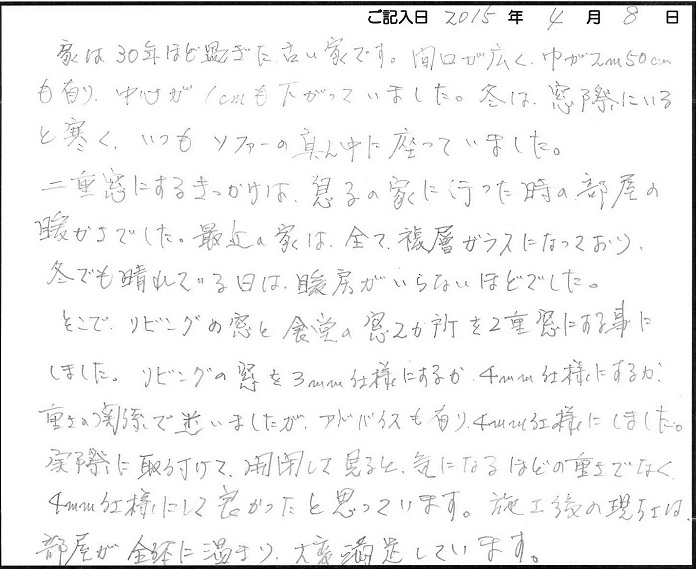 ご記入日 2015 年 4 月 8 日
家は30年ほど過ぎた古い家です。間口が広く、巾が2m50cm
も有り、中心が1cmも下がっていました。冬は、窓際にいる
と寒く、いつもソファーの真ん中に座っていました。
二重窓にするきっかけは、息子の家に行った時の部屋の
暖かさでした。最近の家は、全て、複層ガラスになっており、
冬でも晴れている日は、暖房がいらないほどでした。
そこで、リビングの窓と食堂の窓2カ所を2重窓にする事に
しました。リビングの窓を3mm仕様にするか、4mm仕様にするか、
重さの関係で迷いましたが、アドバイスも有り、4mm仕様にしました。
実際に取り付けて、開閉して見ると、気になるほどの重さでなく、
4mm仕様にして良かったと思っています。施工後の現在は、
部屋が全体に温まり、大変満足しています。